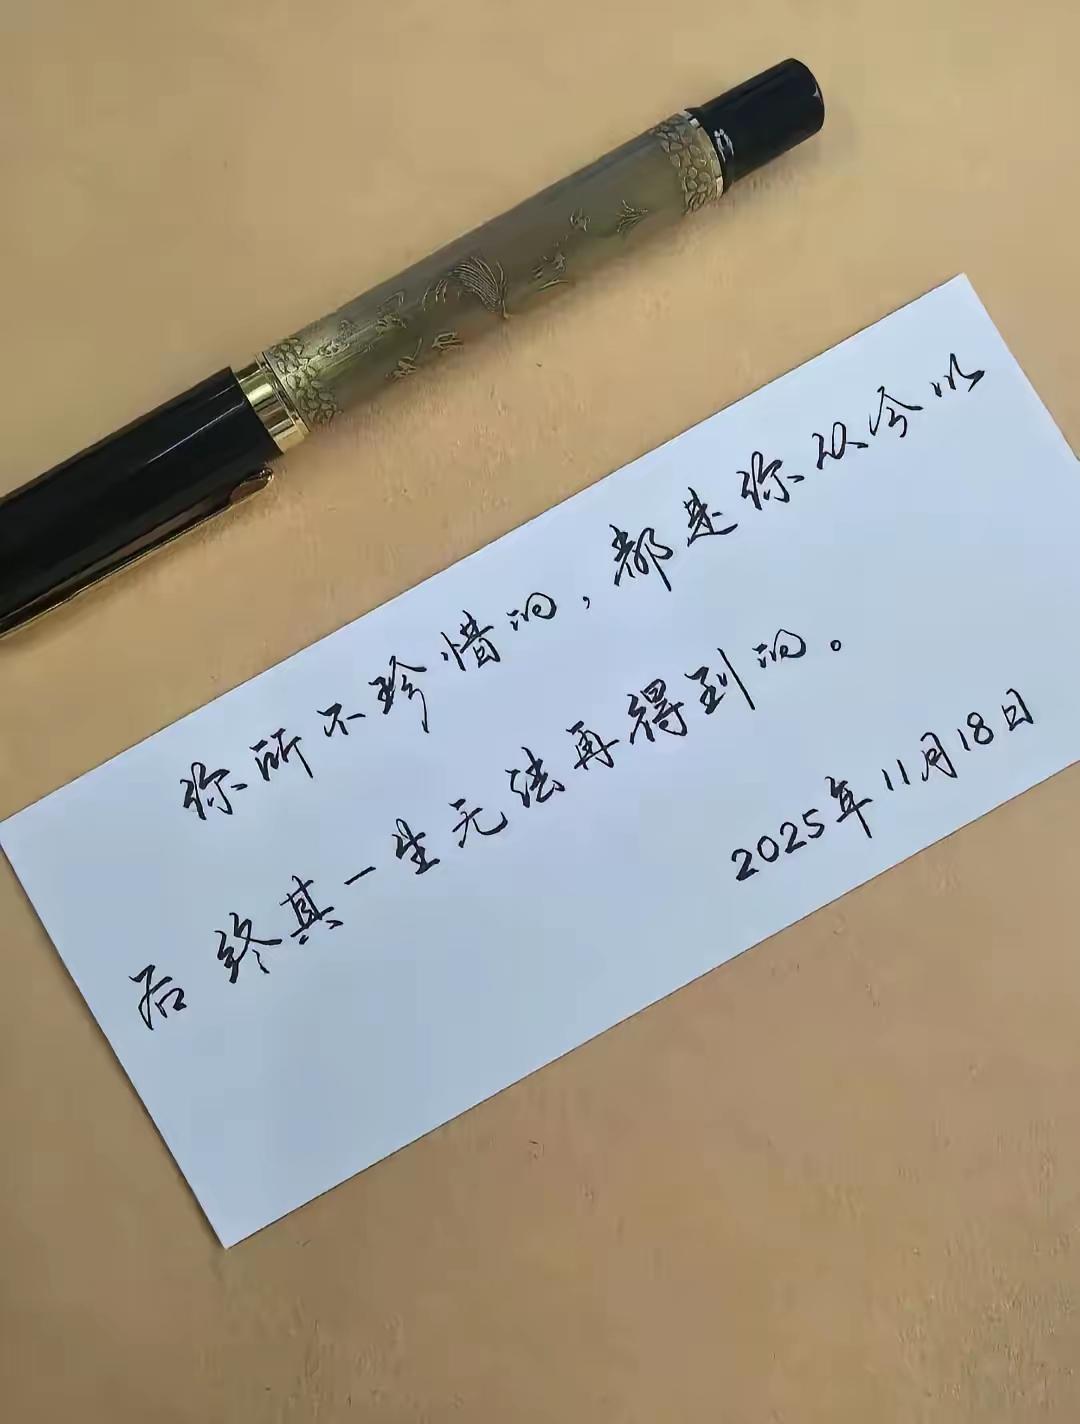 你所不珍惜的，都是你从今以
后终其一生无法再得到的。
2025年11月18日